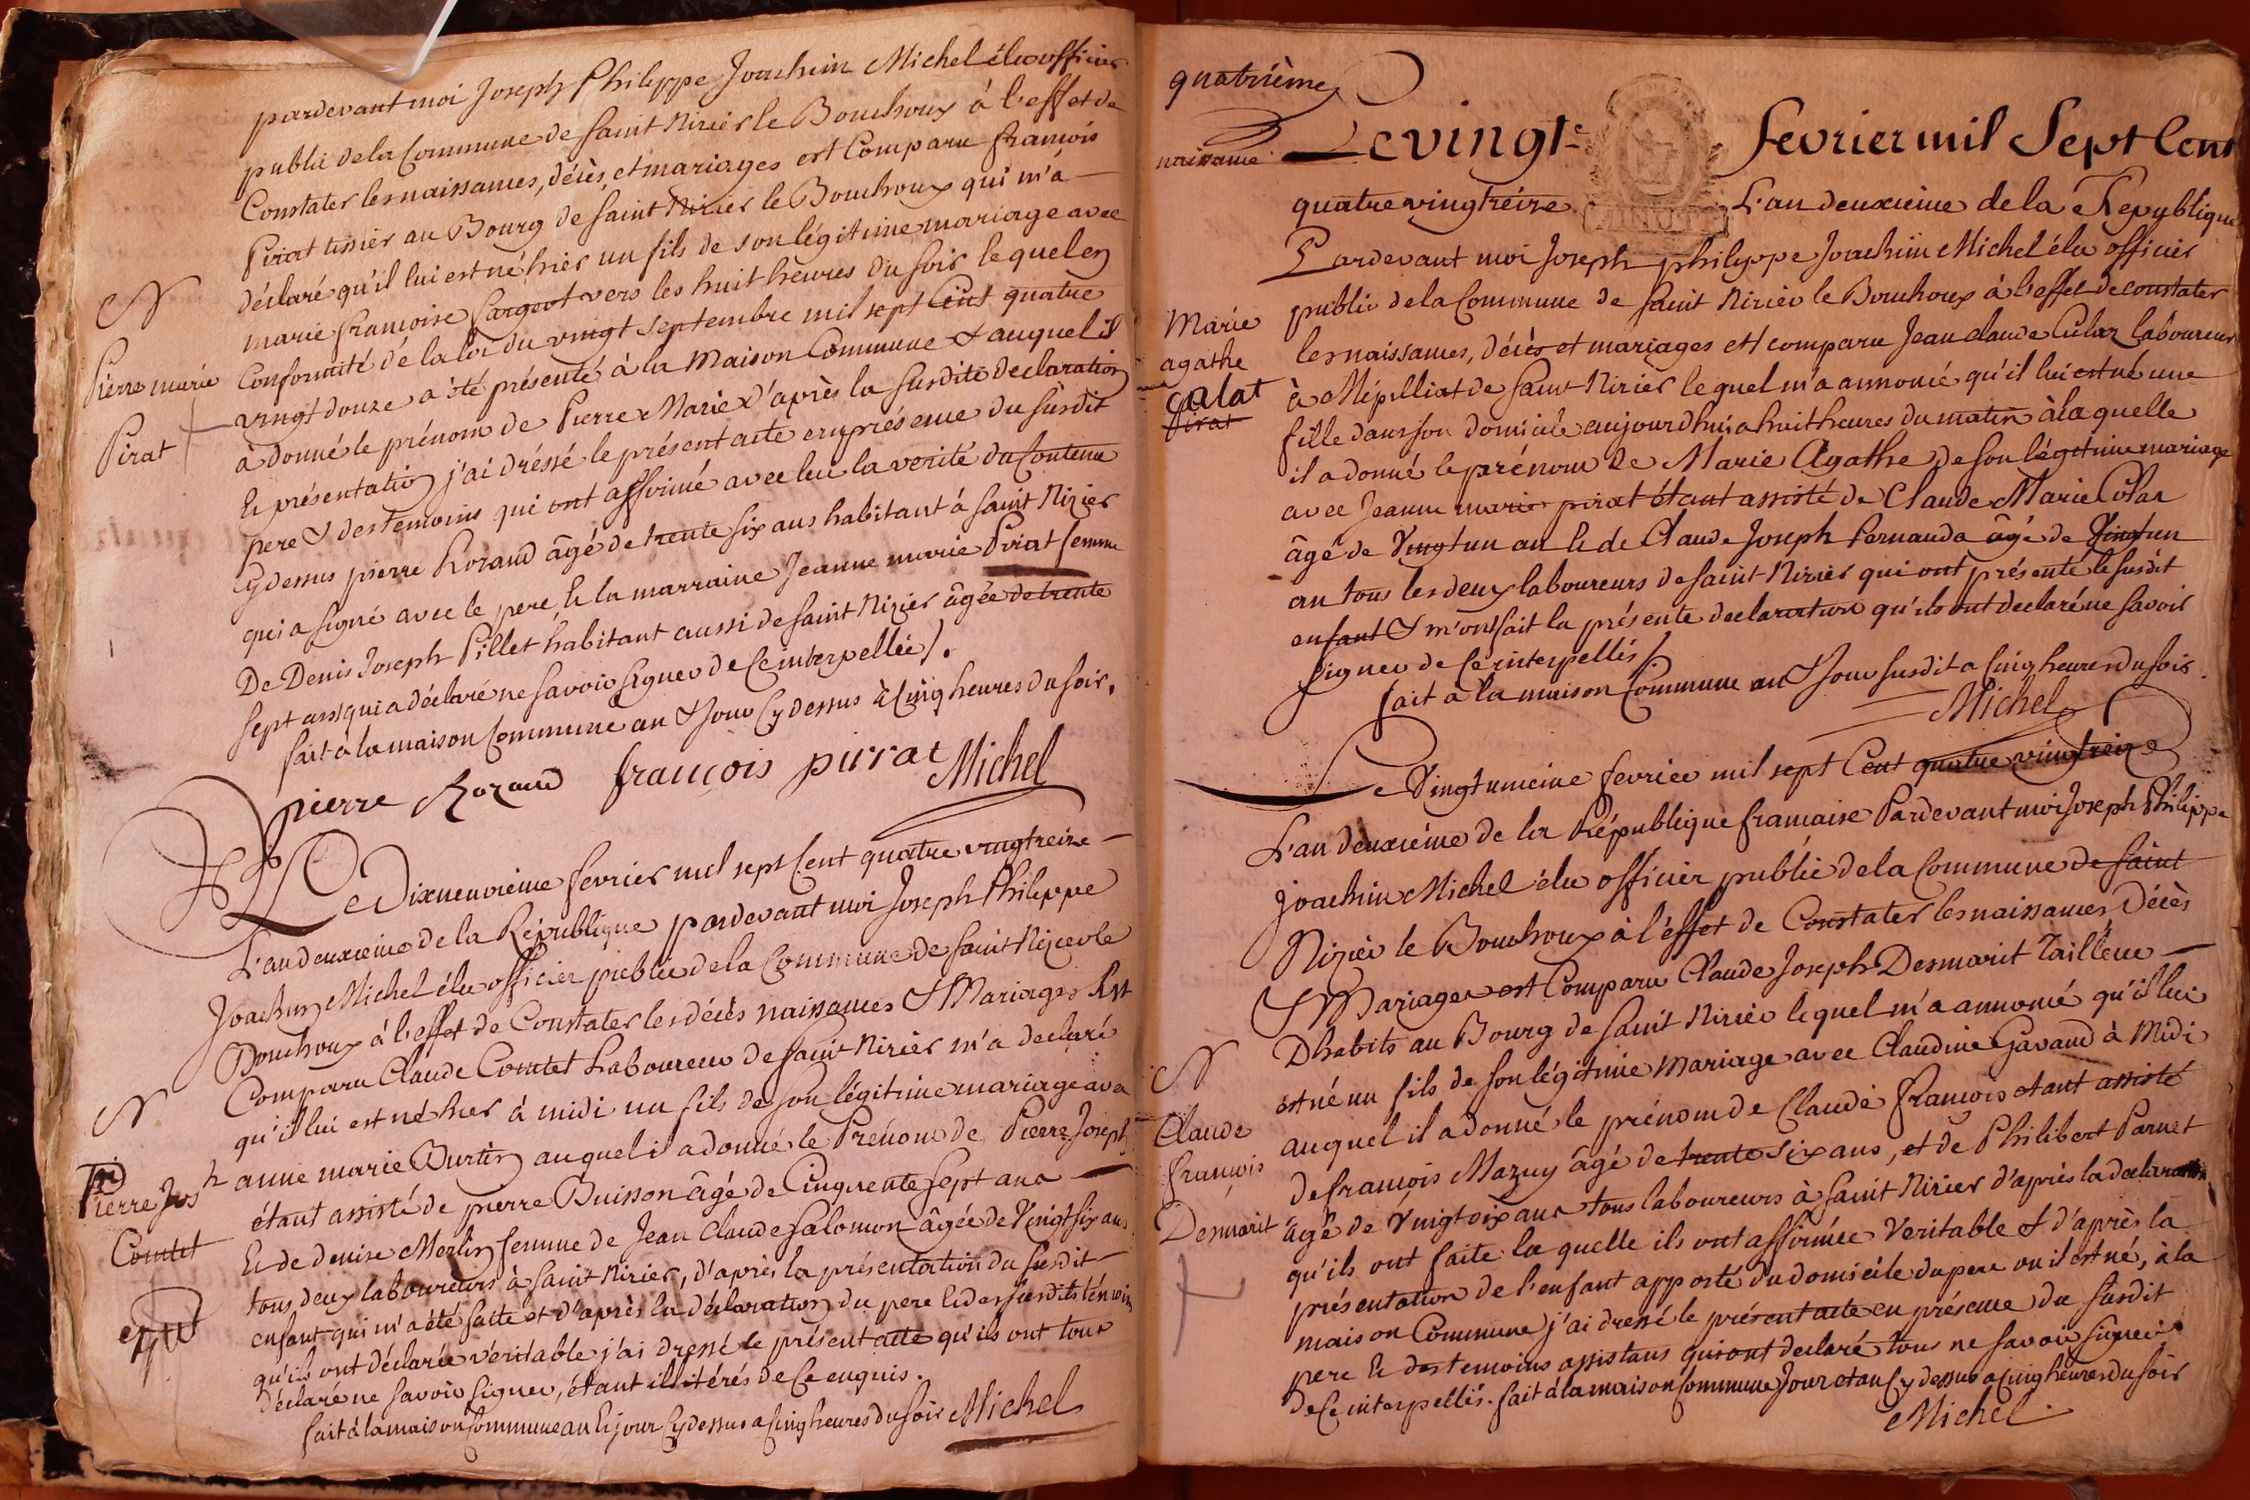 pardevant moi Joseph Philippe Joachim Michel élu officier
public de la Commune de Saint Nizier le Bouchoux à l'effet de
Constater les naissances, décès, et mariages est Comparu françois
Pirat tissier au Bourg de Saint Nizier le Bouchoux qui m'a
déclaré qu'il lui est né hier un fils de son légitime mariage avec
marie françoise vers les huit heures du soir lequel en
Conformité de la loi du vingt septembre mil sept Cent quatre
vingt douze a été présenté à la Maison Commune & auquel il
à donné le prénom de Pierre Marie d'après la susdite declaration
Et présentation j'ai dréssé le présent acte en présence du susdit
pere & des temoins qui ont affirmé avec lui la verité du Contenu
cydessus pierre Rozand âgé de trente six ans habitant à Saint Nizier
qui a signé avec le pere, Et la marraine Jeanne marie Pirat femme
De Denis Joseph Pillet habitant aussi de Saint Nizier âgée de trente
sept ans qui a déclaré ne savoir signer de Ce interpellée /.
fait à la maison Commune an & jour Cy dessus à Cinq heures du soir.
pierre Rozand françois pirrat Michel
N
Pierre marie
Pirat
Le Dixneuvième fevrier mil sept Cent quatre vingt treize
L'an deuxieme de la République pardevant moi Joseph Philippe
Joachim Michel élu officier public de la Commune de Saint Nizier le
Bouchoux à l'effet de Constater les décès naissances & Mariages Est
Comparu Claude Comtet Laboureur de Saint Nizier m'a declaré
qu'il lui est né hier à midi un fils de son légitime mariage avec
anne marie Burtin auquel il a donné le Prénom de Pierre Joseph
étant assisté de pierre Buisson âgé de Cinquente Sept ans
Et de denise Merlin femme de Jean Claude Salomon âgée de Vingt six ans
tous deux laboureurs à Saint Nizier, d'après la présentation du susdit
enfant qui m'a été faite et d'après la déclaration du pere Et des susdits témoins
qu'ils ont déclarée véritable j'ai dressé le présent acte qu'ils ont tous
déclaré ne savoir signer, étant illitérés de Ce enquis.
fait à la maison Commune an Et jour Cy dessus a Cinq heures du soir Michel
N
Pierre Josh
Comtet
quatrième
naissance
Le vingt e fevrier mil Sept Cent
quatre vingt treize L'an deuxieme de la Republique
Pardevant moi Joseph philippe Joachim Michel élu officier
public de la Commune de Saint Nizier le Bouchoux à l'effet de constater
les naissances, décès et mariages est comparu Jean claude Laboureur
à de Saint Nizier lequel m'a annoncé qu'il lui est né une
fille dans son domicile aujourdhui a huit heures du matin à laquelle
il a donné le prénom de Marie Agathe de son légitime mariage
avec Jeanne marie pirat étant assisté de Claude Marie
âgé de Vingt un an Et de Claude Joseph âgé de Vingt un
an tous les deux laboureurs de Saint Nizier qui ont présenté le susdit
enfant & m'ont fait la présente declaration qu'ils ont declaré ne savoir
signer de Ce interpellés /.
fait à la maison Commune an & Jour susdit a Cinq heures du soir.
Michel
Marie
agathe
Calat
pirat
Le Vingt unieme fevrier mil sept Cent quatre vingt treize
L'an deuxieme de la République francaise Pardevant moi Joseph Philippe
Joachim Michel élu officier public de la Commune de Saint
Nizier le Bouchoux à l'effet de Constater les naissances Décès
& Mariages est Comparu Claude Joseph Desmarit Tailleur
D habits au Bourg de Saint Nizier lequel m'a annoncé qu'il lui
est né un fils de son légitime mariage avec Claudine Gavand à Midi
auquel il a donné le prénom de Claude françois etant assisté
de françois Mazuy âgé de trente six ans, et de Philibert Parnet
âgé de Vingt six ans tous laboureurs à Saint Nizier d'après la declaration
qu'ils ont faite laquelle ils ont affirmée Veritable & d'après la
présentation de l'enfant apporté du domicile du pere ou il est né, à la
maison Commune j'ai dressé le présent acte en présence du susdit
pere Et des temoins assistans qui ont declaré tous ne savoir signer
de Ce interpellés. fait à la maison Commune Jour et an Cy dessus a Cinq heures du soir
Michel
N
Claude
françois
Desmarit